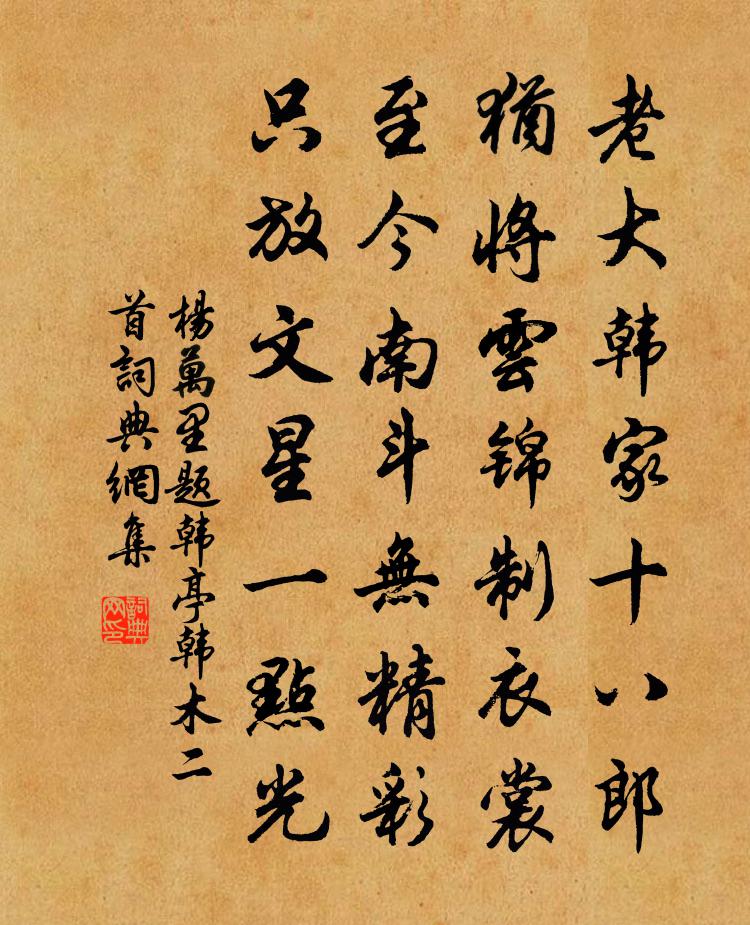 老大韩家十八郎
猶將雲锦制衣裳
至今南斗無精彩
只放文星一點光
楊萬里题韩亭韩木二
首詞典網集
詞典
网印